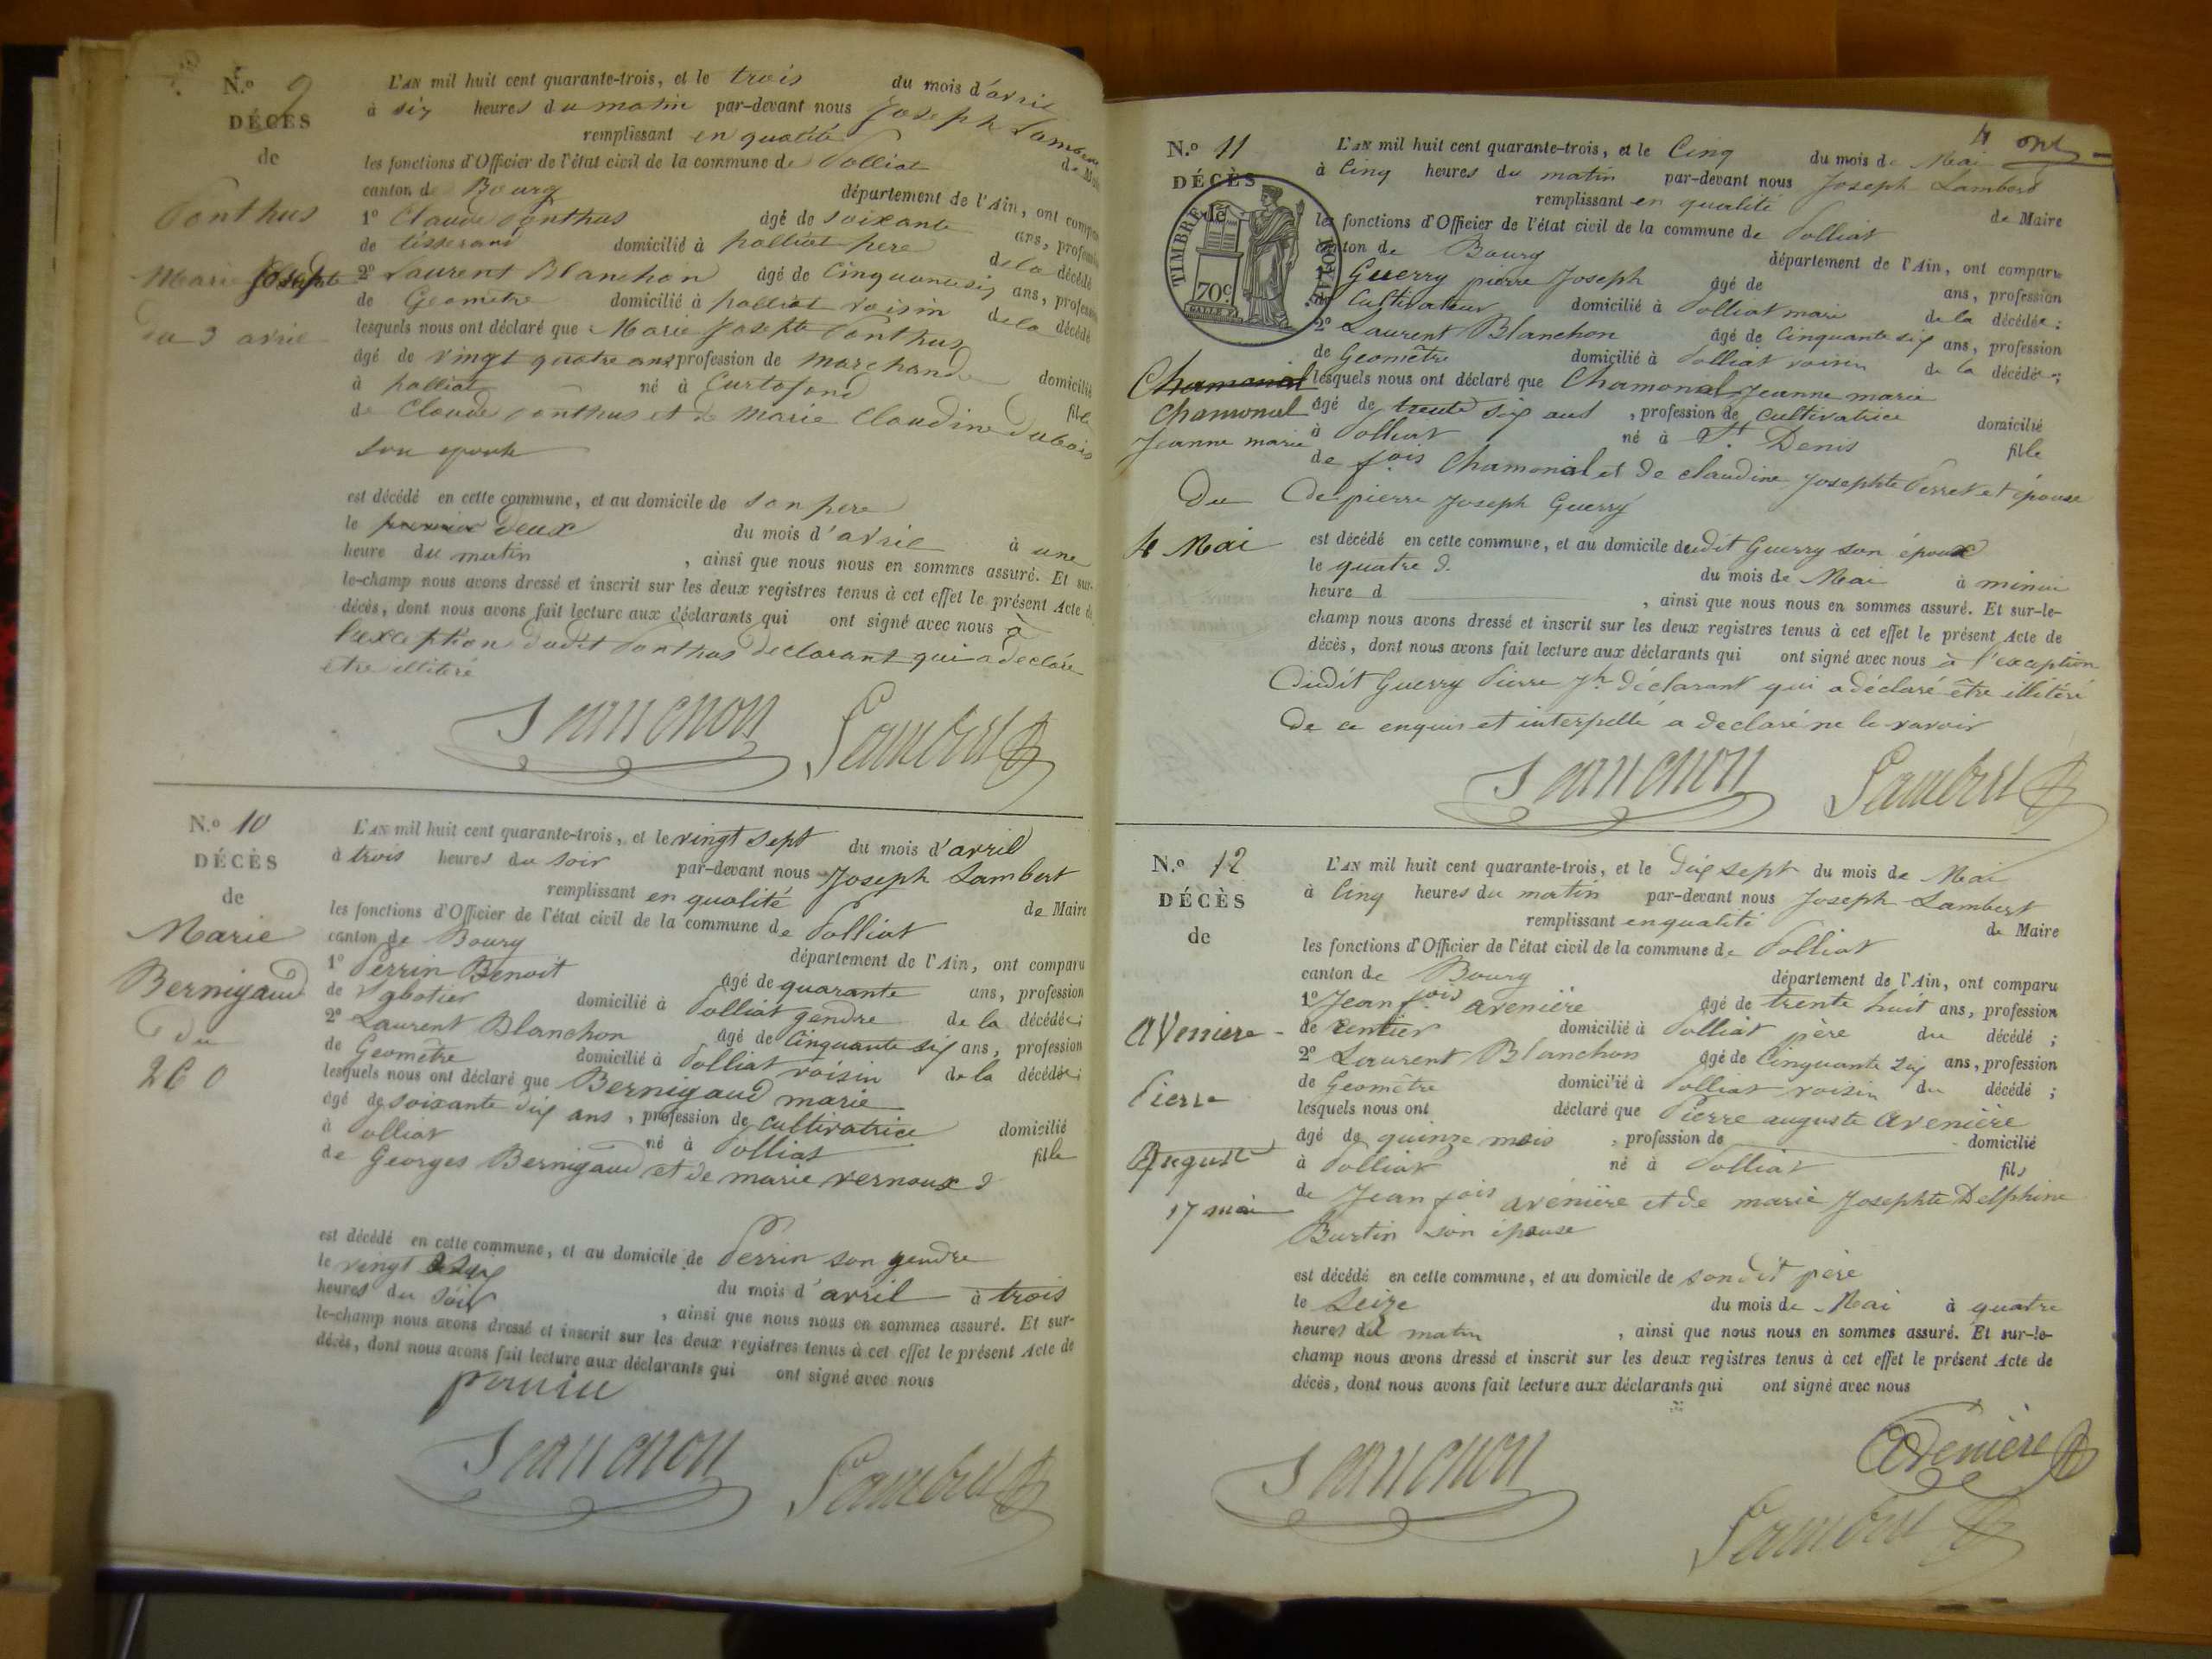 N.o 9
DÉCÈS
de
Ponthus
Marie Josephte
du 3 avril
L'AN mil huit cent quarante-trois, et le trois du mois d'avril
à six heures du matin par-devant nous Joseph Lambert
remplissant en qualité de Maire
les fonctions d'Officier de l'état civil de la commune de Polliat
canton de Bourg département de l'Ain, ont comparu
1o Claude Ponthus âgé de soixante ans, profession
de tisserand domicilié à polliat pere de la décédé
2o Laurent Blanchon âgé de Cinquante six ans, profession
de Geomètre domicilié à polliat voisin de la décédé
lesquels nous ont déclaré que Marie Josephte Ponthus
âgé de vingt quatre ans profession de marchande domicilié
à polliat né à Curtafond fille
de Claude ponthus et de Marie Claudine dubois
son epouse
est décédé en cette commune, et au domicile de son pere
le premier deux du mois d'avril à une
heure du matin, ainsi que nous nous en sommes assuré. Et sur-
le-champ nous avons dressé et inscrit sur les deux registres tenus à cet effet le présent Acte de
décès, dont nous avons fait lecture aux déclarants qui ont signé avec nous à
l'exception dudit Ponthus declarant qui a declaré
etre illitéré
Lambert
N.o 10
DÉCÈS
de
Marie
Bernigaud
du
26
L'AN mil huit cent quarante-trois, et le vingt sept du mois d'avril
à trois heures du soir par-devant nous Joseph Lambert
remplissant en qualité de Maire
les fonctions d'Officier de l'état civil de la commune de Polliat
canton de Bourg département de l'Ain, ont comparu
1o Perrin Benoit âgé de quarante ans, profession
de Sabotier domicilié à Polliat gendre de la décédée;
2o Laurent Blanchon âgé de Cinquante six ans, profession
de Geomètre domicilié à Polliat voisin de la décédée;
lesquels nous ont déclaré que Bernigaud marie
âgé de soixante dix ans, profession de cultivatrice domicilié
à Polliat né à Polliat fille
de Georges Bernigaud et de marie vernoux
est décédé en cette commune, et au domicile de Perrin son gendre
le vingt six du mois d'avril à trois
heures du soir, ainsi que nous nous en sommes assuré. Et sur-
le-champ nous avons dressé et inscrit sur les deux registres tenus à cet effet le présent Acte de
décès, dont nous avons fait lecture aux déclarants qui ont signé avec nous
Lambert
4
N.o 11
DÉCÈS
de
TIMBRE ROYAL
70c
Chamonal
Chamonal
Jeanne marie
Du
4 Mai
L'AN mil huit cent quarante-trois, et le Cinq du mois de Mai
à Cinq heures du matin par-devant nous Joseph Lambert
remplissant en qualité de Maire
les fonctions d'Officier de l'état civil de la commune de Polliat
canton de Bourg département de l'Ain, ont comparu
1o Guerry pierre Joseph âgé de ans, profession
de Cultivateur domicilié à Polliat mari de la décédée;
2o Laurent Blanchon âgé de Cinquante six ans, profession
de Geomètre domicilié à Polliat voisin de la décédée;
lesquels nous ont déclaré que Chamonal Jeanne marie
âgé de trente six ans, profession de cultivatrice domicilié
à Polliat né à St Denis fille
de fois Chamonal et de claudine Josephte Perret et épouse
de pierre Joseph Guerry
est décédé en cette commune, et au domicile dudit Guerry son époux
le quatre d. du mois de Mai à minui
heure d, ainsi que nous nous en sommes assuré. Et sur-le-
champ nous avons dressé et inscrit sur les deux registres tenus à cet effet le présent Acte de
décès, dont nous avons fait lecture aux déclarants qui ont signé avec nous à l'exception
Dudit Guerry Pierre Jh déclarant qui a déclaré être illitéré
De ce enquis et interpellé a declaré ne le savoir
Lambert
N.o 12
DÉCÈS
de
Aveniere
Pierre
Auguste
17 mai
L'AN mil huit cent quarante-trois, et le dix sept du mois de Mai
à Cinq heures du matin par-devant nous Joseph Lambert
remplissant en qualité de Maire
les fonctions d'Officier de l'état civil de la commune de Polliat
canton de Bourg département de l'Ain, ont comparu
1o Jean fois avenière âgé de trente huit ans, profession
de rentier domicilié à Polliat père du décédé;
2o Laurent Blanchon âgé de Cinquante six ans, profession
de Geomètre domicilié à Polliat voisin du décédé;
lesquels nous ont déclaré que Pierre auguste Avenière
âgé de quinze mois, profession de domicilié
à Polliat né à Polliat fils
de Jean fois avenière et de marie Josephte Delphine
Burtin son épouse
est décédé en cette commune, et au domicile de son dit père
le Seize du mois de Mai à quatre
heures du matin, ainsi que nous nous en sommes assuré. Et sur-le-
champ nous avons dressé et inscrit sur les deux registres tenus à cet effet le présent Acte de
décès, dont nous avons fait lecture aux déclarants qui ont signé avec nous
Avenière
Lambert